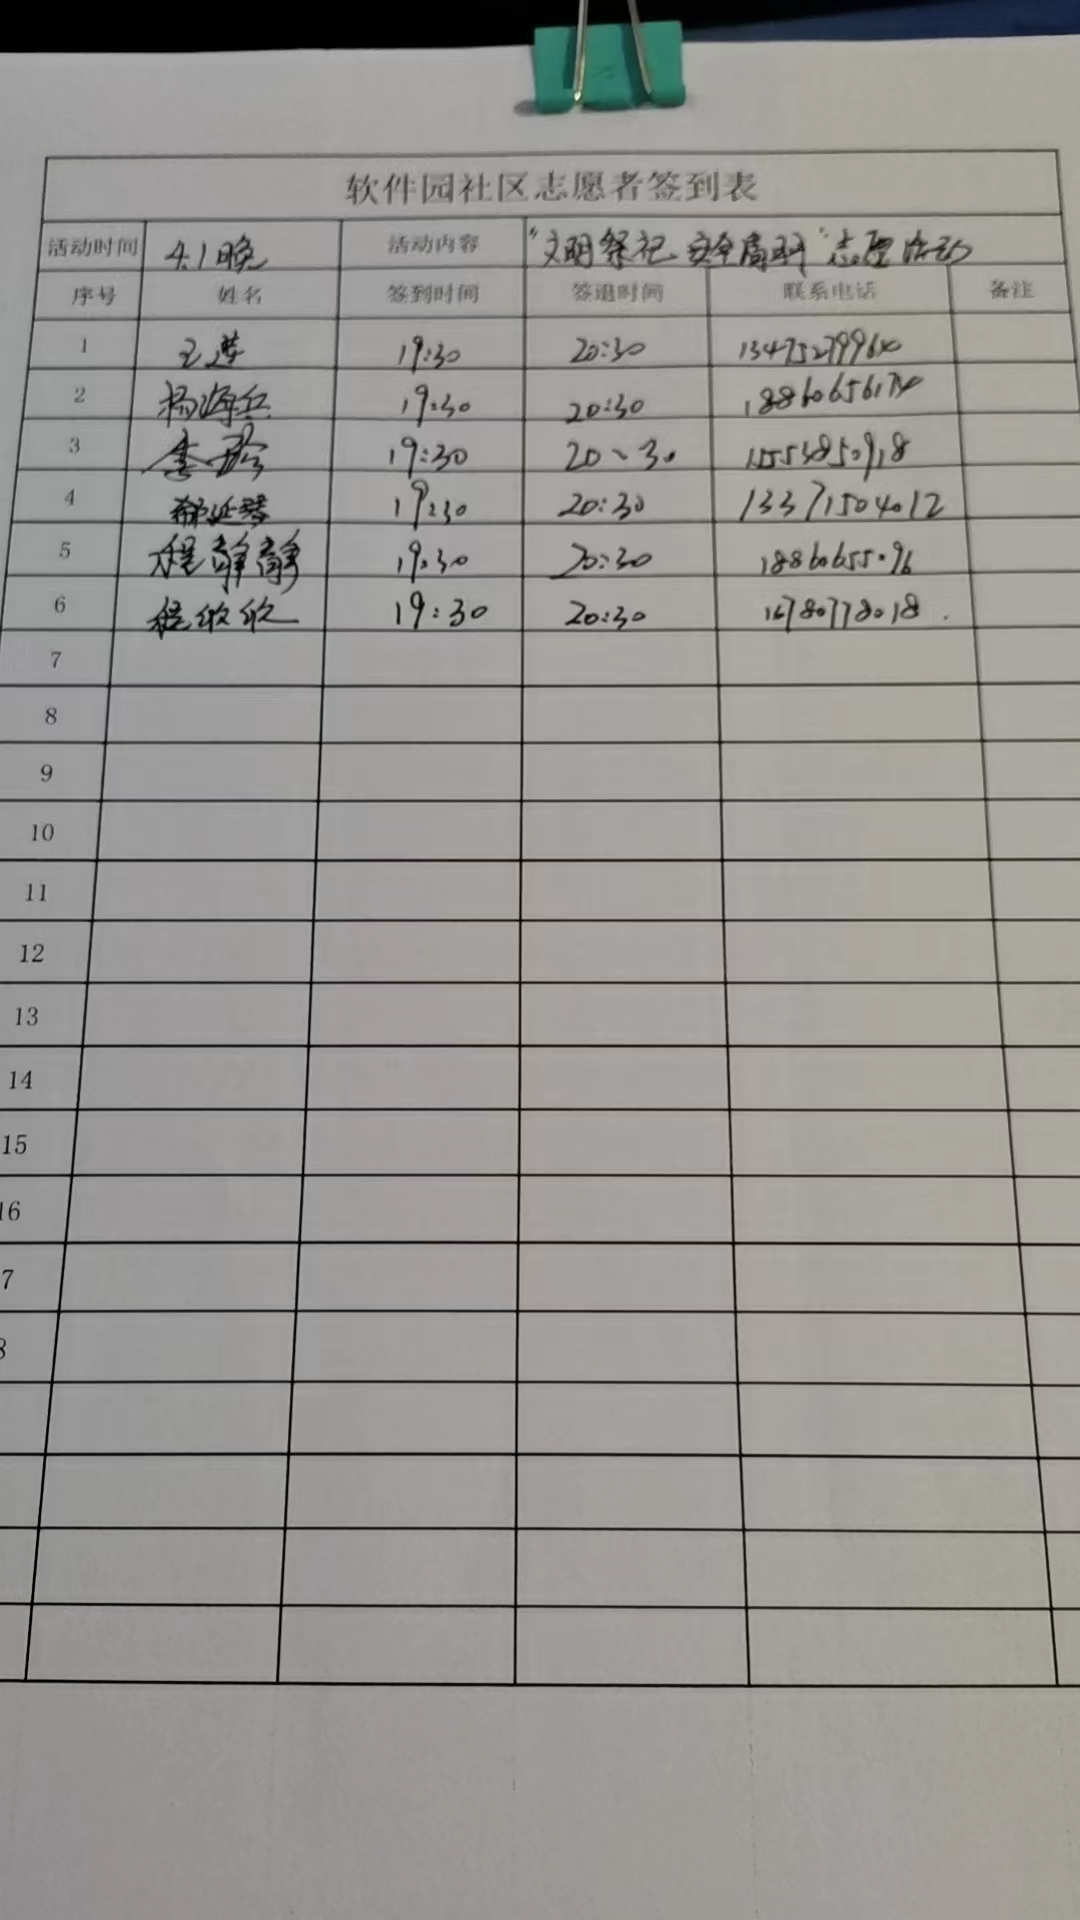 软件园社区志愿者签到表
活动时间 4.1晚 活动内容 "文明祭祀 安全高效"志愿活动
序号 姓名 签到时间 签退时间 联系电话 备注
1 19:30 20:30
2 杨海兵 19:30 20:30
3 李珍 19:30 20:30
4 19:30 20:30 13371504012
5 程静静 19:30 20:30 18860655096
6 程欣欣 19:30 20:30 16780778018
7
8
9
10
11
12
13
14
15
16
7
8